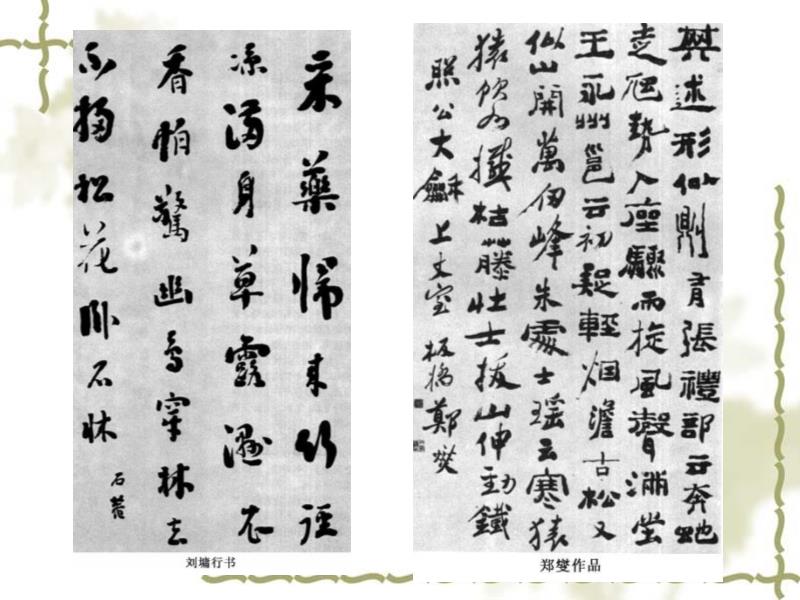 采藥歸來竹徑
涼滿身草露濕衣
香怕驚幽鳥穿林去
不掃松花臥石床
石菴
刘墉行书
其述形似則有張禮部云奔虵
走虺勢入座驟雨旋風聲滿堂
王永州邕云初疑輕烟澹古松又
似山開萬仞峰朱處士瑤云寒猿
猿飲水撼枯藤壯士拔山伸勁鐵
照公大龢上丈室 板橋鄭燮
郑燮作品